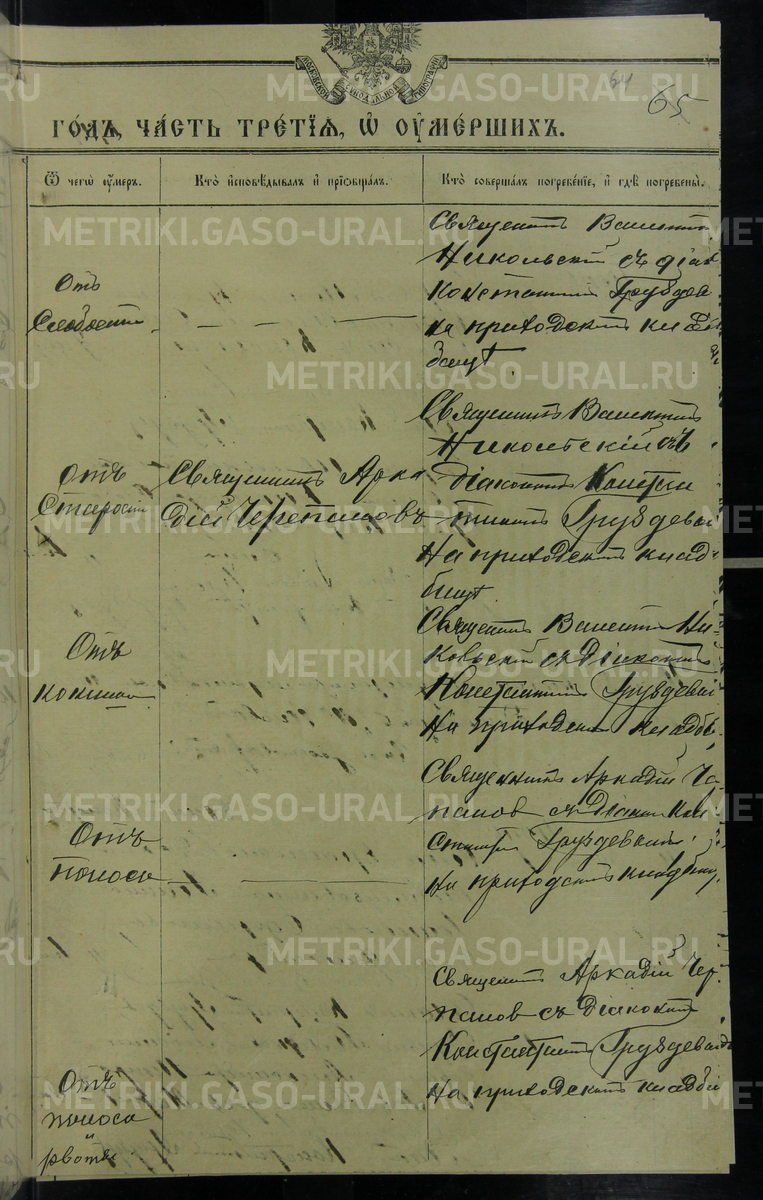 64
65
МОСКОВСКОЙ СѴНОДАЛЬНОЙ ТИПОГРАФІИ
METRIKI.GASO-URAL.RU
го́дъ, ча́сть тре́тїѧ, ѡ҆ ᲂу҆ме́ршихъ.
Ѿ чегѡ̀ ᲂу҆́меръ.
Кто̀ и҆сповѣ́дывалъ и҆ прїѡбща́лъ.
Кто̀ соверша́лъ погребе́нїе, и҆ гдѣ̀ погребены̀.
Отъ
Слабости
Священникъ Валентинъ
Никольскій съ діак
Константин Груздев
на приходском кла
бищѣ
Отъ
Старости
Священникъ Арка
дій Черепановъ
Священникъ Валентинъ
Никольскій съ
Діакономъ Констан
тином Груздевым
На приходскомъ клад
бищѣ
Отъ
коклюша
Священникъ Валентин Ни
кольскій съ Діакономъ
Константином Груздевым
На приходском кладб
Отъ
Поноса
Священникъ Аркадій Че
панов съ Діакон Кон
стантин Груздевым
на приходскомъ кладбищ
Отъ
поноса
и
рвоты
Священникъ Аркадій Чер
панов съ Діакономъ
Константином Груздевым
на приходскомъ кладби